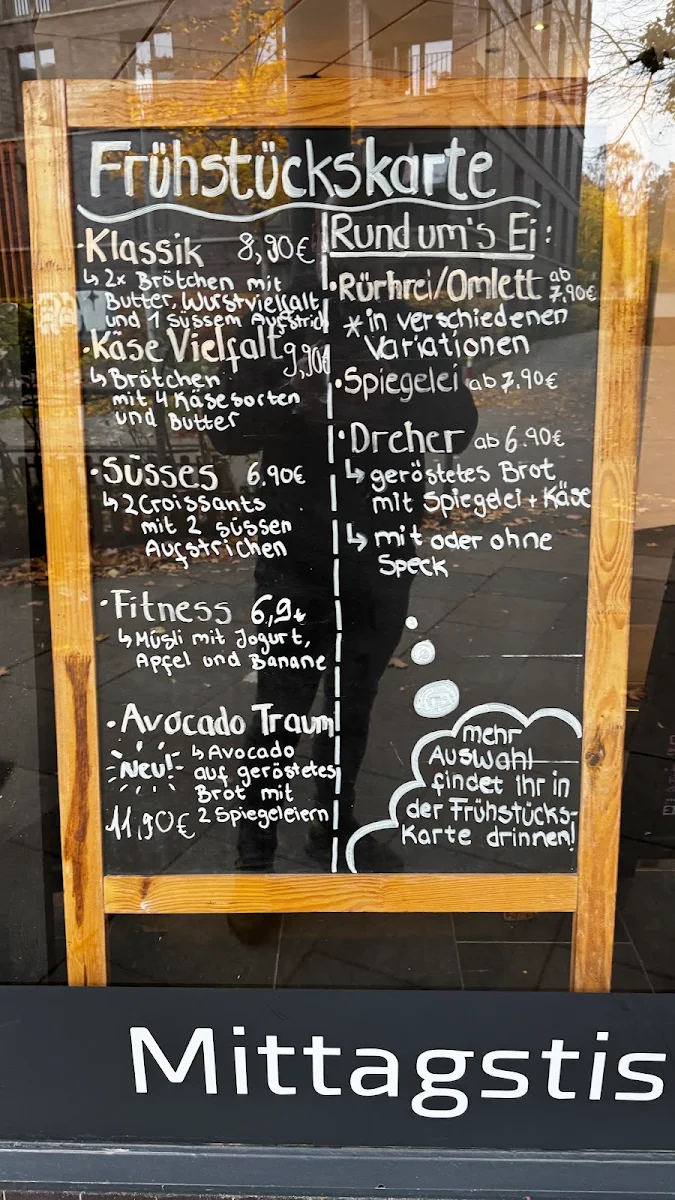 Frühstückskarte
·Klassik 8,90€
↳ 2x Brötchen mit
Butter, Wurstvielfalt
und 1 süssem Aufstrich
·Käse Vielfalt 9,90€
↳ Brötchen
mit 4 Käsesorten
und Butter
·Süsses 6.90€
↳ 2 Croissants
mit 2 süssen
Aufstrichen
·Fitness 6,9€
↳ Müsli mit Jogurt,
Apfel und Banane
·Avocado Traum
Neu!
↳ Avocado
auf geröstetes
Brot mit
2 Spiegeleiern
11,90€
Rund um's Ei:
·Rürhrei/Omlett ab 7,90€
*in verschiedenen
Variationen
·Spiegelei ab 7.90€
·Dreher ab 6.90€
↳ geröstetes Brot
mit Spiegelei + Käse
↳ mit oder ohne
Speck
mehr
Auswahl
findet Ihr in
der Frühstücks-
Karte drinnen!
Mittagstis